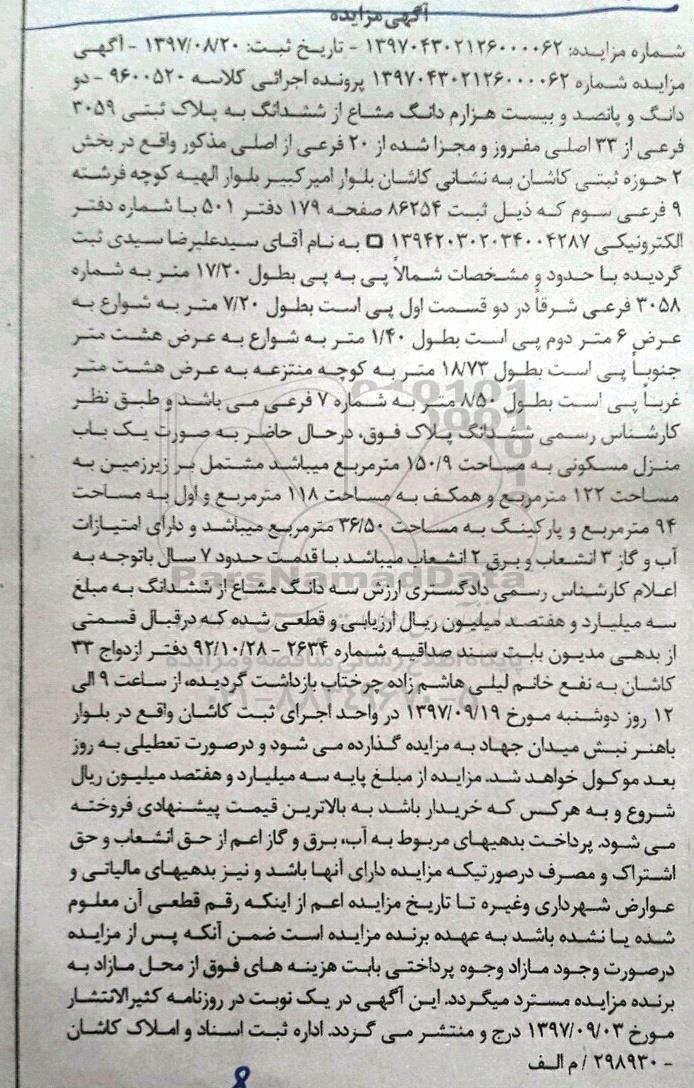 آگهی مزایده
شماره مزایده: ۱۳۹۷۰۴۳۰۲۱۲۶۰۰۰۰۶۲ - تاریخ ثبت: ۱۳۹۷/۰۸/۲۰ - آگهی
مزایده شماره ۱۳۹۷۰۴۳۰۲۱۲۶۰۰۰۰۶۲ پرونده اجرائی کلاسه ۹۶۰۰۵۲۰ - دو
دانگ و پانصد و بیست هزارم دانگ مشاع از ششدانگ به پلاک ثبتی ۳۰۵۹
فرعی از ۳۳ اصلی مفروز و مجزا شده از ۲۰ فرعی از اصلی مذکور واقع در بخش
۲ حوزه ثبتی کاشان به نشانی کاشان بلوار امیرکبیر بلوار الهیه کوچه فرشته
۹ فرعی سوم که ذیل ثبت ۸۶۲۵۴ صفحه ۱۷۹ دفتر ۵۰۱ با شماره دفتر
الکترونیکی ۱۳۹۴۲۰۳۰۲۰۳۴۰۰۴۲۸۷ □ به نام آقای سیدعلیرضا سیدی ثبت
گردیده با حدود و مشخصات شمالاً پی به پی بطول ۱۷/۲۰ متر به شماره
۳۰۵۸ فرعی شرقاً در دو قسمت اول پی است بطول ۷/۲۰ متر به شوارع به
عرض ۶ متر دوم پی است بطول ۱/۴۰ متر به شوارع به عرض هشت متر
جنوباً پی است بطول ۱۸/۷۳ متر به کوچه منتزعه به عرض هشت متر
غرباً پی است بطول ۸/۵۰ متر به شماره ۷ فرعی می باشد و طبق نظر
کارشناس رسمی ششدانگ پلاک فوق، درحال حاضر به صورت یک باب
منزل مسکونی به مساحت ۱۵۰/۹ مترمربع میباشد مشتمل بر زیرزمین به
مساحت ۱۲۲ مترمربع و همکف به مساحت ۱۱۸ مترمربع و اول به مساحت
۹۴ مترمربع و پارکینگ به مساحت ۳۶/۵۰ مترمربع میباشد و دارای امتیازات
آب و گاز ۳ انشعاب و برق ۲ انشعاب میباشد با قدمت حدود ۷ سال باتوجه به
اعلام کارشناس رسمی دادگستری ارزش سه دانگ مشاع از ششدانگ به مبلغ
سه میلیارد و هفتصد میلیون ریال ارزیابی و قطعی شده که درقبال قسمتی
از بدهی مدیون بابت سند صداقیه شماره ۲۶۳۴ - ۹۲/۱۰/۲۸ دفتر ازدواج ۳۳
کاشان به نفع خانم لیلی هاشم زاده چرختاب بازداشت گردیده، از ساعت ۹ الی
۱۲ روز دوشنبه مورخ ۱۳۹۷/۰۹/۱۹ در واحد اجرای ثبت کاشان واقع در بلوار
باهنر نبش میدان جهاد به مزایده گذارده می شود و درصورت تعطیلی به روز
بعد موکول خواهد شد. مزایده از مبلغ پایه سه میلیارد و هفتصد میلیون ریال
شروع و به هرکس که خریدار باشد به بالاترین قیمت پیشنهادی فروخته
می شود. پرداخت بدهیهای مربوط به آب، برق و گاز اعم از حق انشعاب و حق
اشتراک و مصرف درصورتیکه مزایده دارای آنها باشد و نیز بدهیهای مالیاتی و
عوارض شهرداری وغیره تا تاریخ مزایده اعم از اینکه رقم قطعی آن معلوم
شده یا نشده باشد به عهده برنده مزایده است ضمن آنکه پس از مزایده
درصورت وجود مازاد وجوه پرداختی بابت هزینه های فوق از محل مازاد به
برنده مزایده مسترد میگردد. این آگهی در یک نوبت در روزنامه کثیرالانتشار
مورخ ۱۳۹۷/۰۹/۰۳ درج و منتشر می گردد. اداره ثبت اسناد و املاک کاشان
- ۲۹۸۹۳۰ / م الف
ParsNamadData
پایگاه اطلاع رسانی مناقصه و مزایده